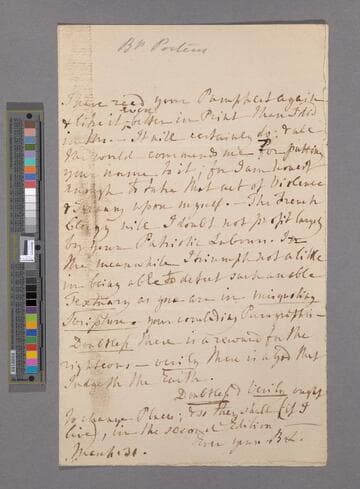 Bp. Porteus
I have read your Pamphlet again
even
& like it better in Print than I did
in Ms. - It will certainly do; & all
the world commends me for putting
your name to it, for I am honest
enough to take that act of Violence
& Tyranny upon myself. - The French
Clergy will I doubt not profit largely
by your Patriotic Labours. In
the meanwhile I triumph not a little
in being able to detect such an able
Textuary as you are in misquoting
Scripture. your concluding Paragraph is -
Doubtless there is a reward for the
righteous, - verily there is a God that
Judgeth the Earth.
Doubtless & Verily ought
to change Places; & so they shall (if I
live), in the second Edition
Ever yours B.L.
March 30.